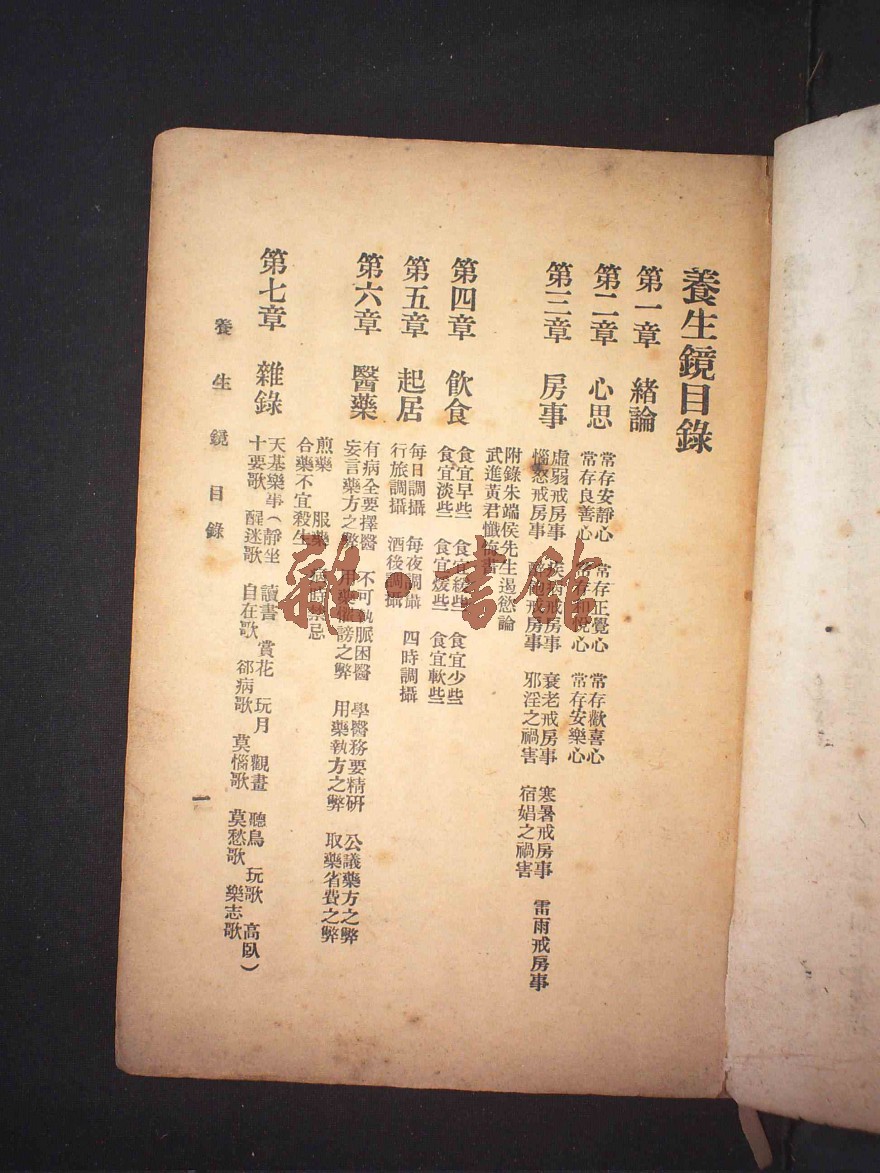 養生鏡目錄
第一章 緒論
第二章 心思
常存安靜心 常存正覺心 常存歡喜心
常存良善心 常存和悅心 常存安樂心
第三章 房事
虛弱戒房事 疾病戒房事 衰老戒房事 寒暑戒房事 雷雨戒房事
惱怒戒房事 醉飽戒房事 邪淫之禍害 宿娼之禍害
附錄朱端侯先生遏慾論
武進黃君懺悔書
第四章 飲食
食宜早些 食宜緩些 食宜少些
食宜淡些 食宜煖些 食宜軟些
第五章 起居
每日調攝 每夜調攝 四時調攝
行旅調攝 酒後調攝
第六章 醫藥
有病全要擇醫 不可執脈困醫 學醫務要精硏 公議藥方之弊
妄言藥方之弊 用藥 謗之弊 用藥執方之弊 取藥省費之弊
煎藥 服藥 病時禁忌
合藥不宜殺生
第七章 雜錄
天基樂事(靜坐 讀書 賞花 玩月 觀畫 聽鳥 玩歌 高臥)
十要歌 醒迷歌 自在歌 郤病歌 莫惱歌 莫愁歌 樂志歌
養生鏡目錄
一
雜·書館